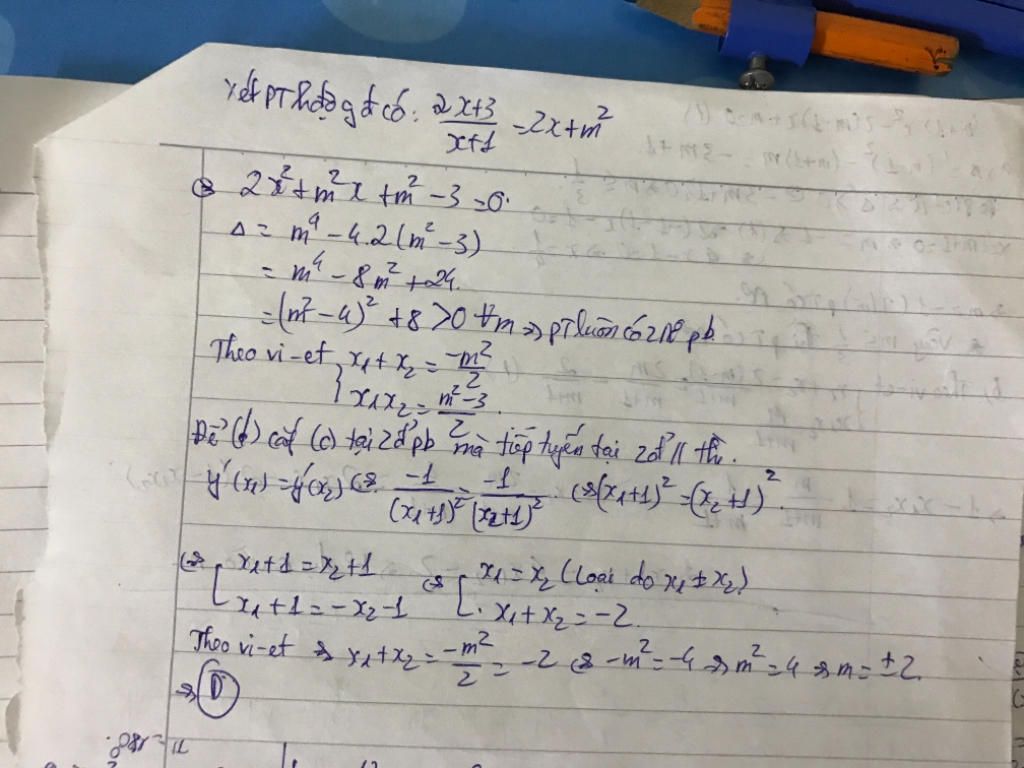 Xét PT hđgđ có: \frac{2x+3}{x+1} = 2x+m²
⇔ 2x²+m²x+m²-3=0.
Δ = m⁴ - 4.2(m²-3)
= m⁴ - 8m² + 24.
= (m²-4)² + 8 > 0 ∀m ⇒ PT luôn có 2 n⁰ pb.
Theo vi-et { x₁+x₂ = \frac{-m²}{2}
x₁x₂ = \frac{m²-3}{2}.
Để (d) cắt (c) tại 2đ' pb mà tiếp tuyến tại 2đ' // thì.
y'(x₁)=y'(x₂) ⇔ \frac{-1}{(x₁+1)²} = \frac{-1}{(x₂+1)²}. ⇔ (x₁+1)² = (x₂+1)².
⇔ [ x₁+1=x₂+1 ⇔ [ x₁=x₂ (loại do x₁ ± x₂)
x₁+1=-x₂-1 x₁+x₂=-2.
Theo vi-et ⇒ x₁+x₂ = \frac{-m²}{2} = -2 ⇔ -m²=-4 ⇒ m²=4 ⇒ m=±2.
⇒ D